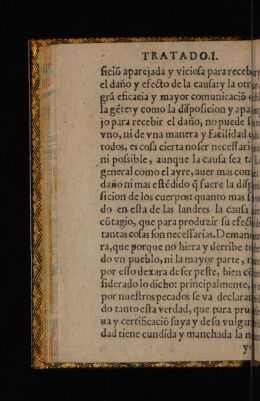 TRATADO.I.
siciõ aparejada y viciosa para receb
el daño y efecto de la causa: y la otr
grã eficacia y mayor comunicaciõ
la gẽte: y como la disposicion y apa
jo para recebir el daño, no puede s
vno, ni de vna manera y facilidad
todos, es cosa cierta no ser necessari
ni possible, aunque la causa sea t
general como el ayre, auer mas com
daño ni mas estẽdido q̃ fuere la dis
sicion de los cuerpos: quanto mas s
do en esta de las landres la causa
cõtagio, que para produzir su efect
tantas cosas son necessarias. De man
ra, que porque no hiera y derribe t
do vn pueblo, ni la mayor parte,
por esso dexara de ser peste, bien cõ
siderado lo dicho: principalmente,
por nuestros pecados se va declaran
do tanto esta verdad, que para pru
ua y certificaciõ suya y de su vulgar
dad tiene cundida y manchada la n